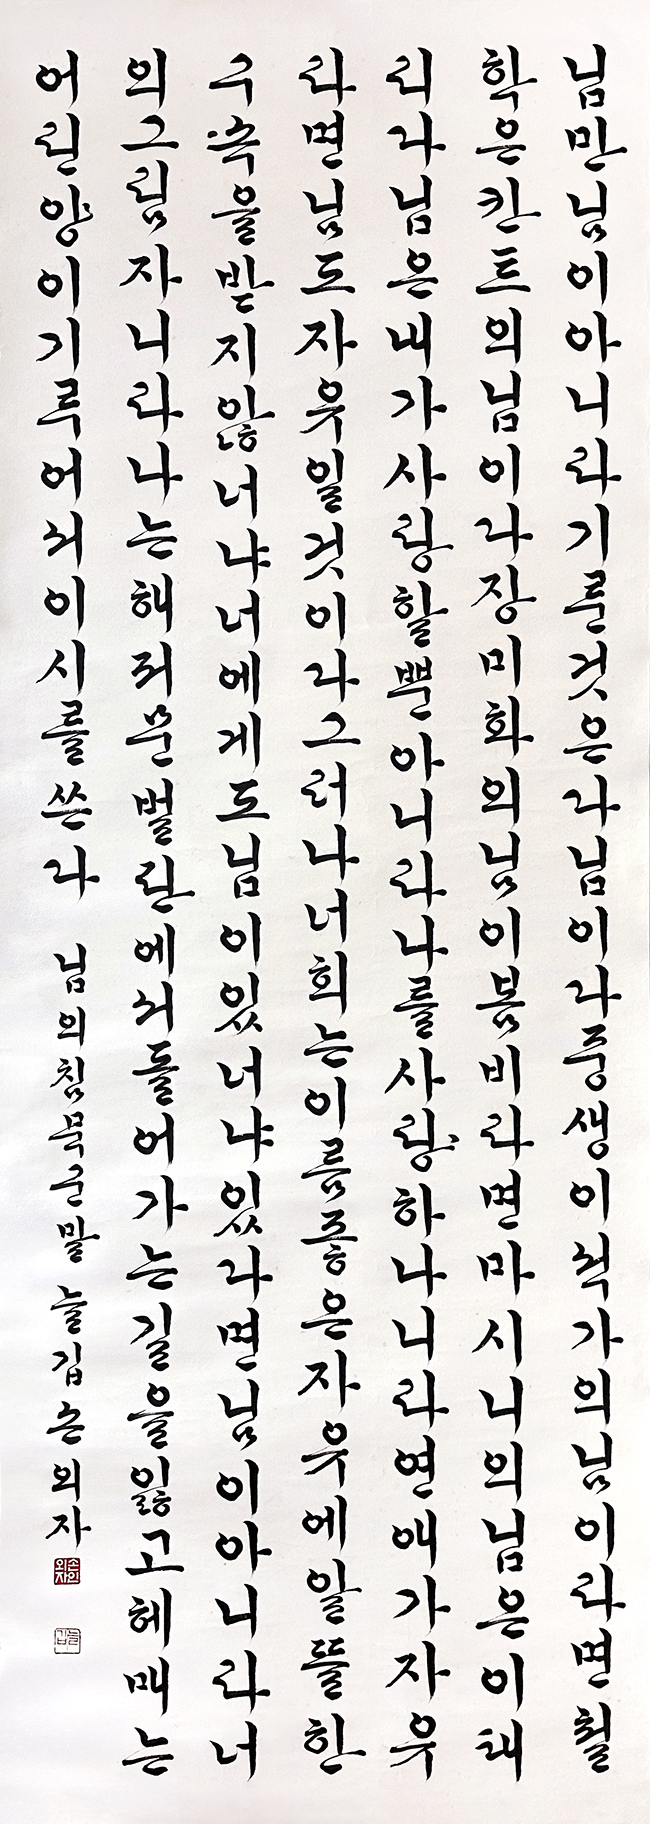 님만님이아니라기룬것은다님이다중생이석가의님이라면철
학은칸트의님이다장미화의님이봄비라면마시니의님은이태
리다님은내가사랑할뿐아니라나를사랑하나니라연애가자유
라면님도자유일것이다그러나너희는이름좋은자유에알뜰한
구속을받지않너냐너에게도님이있너냐있다면님이아니라너
의그림자니라나는해저문벌판에서돌어가는길을잃고헤매는
어린양이기루어서이시를쓴다 님의침묵군말 늘깁손외자
손외자